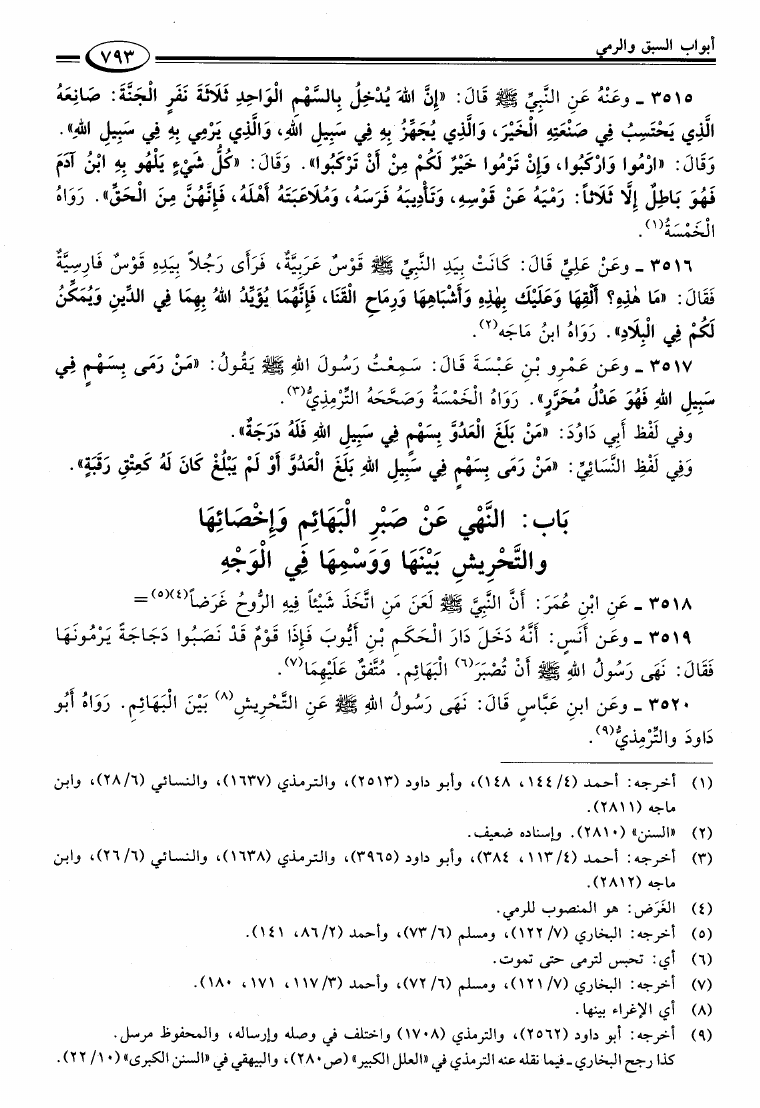 أبواب السبق والرمي
٧٩٣
٣٥١٥ ـ وعَنْهُ عَنِ النَّبِيِّ ﷺ قَالَ: «إِنَّ اللهَ يُدْخِلُ بِالسَّهْمِ الْوَاحِدِ ثَلَاثَةَ نَفَرٍ الْجَنَّةَ: صَانِعَهُ
الَّذِي يَحْتَسِبُ فِي صَنْعَتِهِ الْخَيْرَ، وَالَّذِي يُجَهِّزُ بِهِ فِي سَبِيلِ اللهِ، وَالَّذِي يَرْمِي بِهِ فِي سَبِيلِ اللهِ».
وَقَالَ: «ارْمُوا وَارْكَبُوا، وَإِنْ تَرْمُوا خَيْرٌ لَكُمْ مِنْ أَنْ تَرْكَبُوا». وَقَالَ: «كُلُّ شَيْءٍ يَلْهُو بِهِ ابْنُ آدَمَ
فَهُوَ بَاطِلٌ إِلَّا ثَلَاثاً: رَمْيَهُ عَنْ قَوْسِهِ، وَتَأْدِيبَهُ فَرَسَهُ، وَمُلَاعَبَتَهُ أَهْلَهُ، فَإِنَّهُنَّ مِنَ الْحَقِّ». رَوَاهُ
الْخَمْسَةُ(١).
٣٥١٦ ـ وعَنْ عَلِيٍّ قَالَ: كَانَتْ بِيَدِ النَّبِيِّ ﷺ قَوْسٌ عَرَبِيَّةٌ، فَرَأَى رَجُلاً بِيَدِهِ قَوْسٌ فَارِسِيَّةٌ
فَقَالَ: «مَا هٰذِهِ؟ أَلْقِهَا وَعَلَيْكَ بِهٰذِهِ وَأَشْبَاهِهَا وَرِمَاحِ الْقَنَا، فَإِنَّهُمَا يُؤَيِّدُ اللهُ بِهِمَا فِي الدِّينِ وَيُمَكِّنُ
لَكُمْ فِي الْبِلَادِ». رَوَاهُ ابْنُ مَاجَه(٢).
٣٥١٧ ـ وعَن عَمْرِو بْنِ عَبْسَةَ قَالَ: سَمِعْتُ رَسُولَ اللهِ ﷺ يَقُولُ: «مَنْ رَمَى بِسَهْمٍ فِي
سَبِيلِ اللهِ فَهُوَ عَدْلُ مُحَرَّرٍ». رَوَاهُ الْخَمْسَةُ وَصَحَّحَهُ التِّرْمِذِيُّ(٣).
وفي لَفْظِ أَبِي دَاوُدَ: «مَنْ بَلَغَ الْعَدُوَّ بِسَهْمٍ فِي سَبِيلِ اللهِ فَلَهُ دَرَجَةٌ».
وَفِي لَفْظِ النَّسَائِيِّ: «مَنْ رَمَى بِسَهْمٍ فِي سَبِيلِ اللهِ بَلَغَ الْعَدُوَّ أَوْ لَمْ يَبْلُغْ كَانَ لَهُ كَعِتْقِ رَقَبَةٍ».
بَاب: النَّهْي عَنْ صَبْرِ الْبَهَائِمِ وَإِخْصَائِهَا
والتَّحْرِيشِ بَيْنَهَا وَوَسْمِهَا فِي الْوَجْهِ
٣٥١٨ ـ عَنِ ابْنِ عُمَرَ: أَنَّ النَّبِيَّ ﷺ لَعَنَ مَنِ اتَّخَذَ شَيْئاً فِيهِ الرُّوحُ غَرَضاً(٤)(٥)=
٣٥١٩ ـ وعَن أَنَسٍ: أَنَّهُ دَخَلَ دَارَ الْحَكَمِ بْنِ أَيُّوبَ فَإِذَا قَوْمٌ قَدْ نَصَبُوا دَجَاجَةً يَرْمُونَهَا
فَقَالَ: نَهَى رَسُولُ اللهِ ﷺ أَنْ تُصْبَرَ(٦) الْبَهَائِم. مُتَّفقٌ عَلَيْهِمَا(٧).
٣٥٢٠ ـ وعَن ابنِ عَبَّاسٍ قَالَ: نَهَى رَسُولُ اللهِ ﷺ عَنِ التَّحْرِيشِ(٨) بَيْنَ الْبَهَائِمِ. رَوَاهُ أَبُو
دَاودَ والتِّرْمِذيُّ(٩).
(١) أخرجه: أحمد (٤/ ١٤٤، ١٤٨)، وأبو داود (٢٥١٣)، والترمذي (١٦٣٧)، والنسائي (٦/ ٢٨)، وابن
ماجه (٢٨١١).
(٢) «السنن» (٢٨١٠). وإسناده ضعيف.
(٣) أخرجه: أحمد (٤/ ١١٣، ٣٨٤)، وأبو داود (٣٩٦٥)، والترمذي (١٦٣٨)، والنسائي (٦/ ٢٦)، وابن
ماجه (٢٨١٢).
(٤) الغَرَض: هو المنصوب للرمي.
(٥) أخرجه: البخاري (٧/ ١٢٢)، ومسلم (٦/ ٧٣)، وأحمد (٢/ ٨٦، ١٤١).
(٦) أي: تحبس لترمى حتى تموت.
(٧) أخرجه: البخاري (٧/ ١٢١)، ومسلم (٦/ ٧٢)، وأحمد (٣/ ١١٧، ١٧١، ١٨٠).
(٨) أي الإغراء بينها.
(٩) أخرجه: أبو داود (٢٥٦٢)، والترمذي (١٧٠٨) واختلف في وصله وإرساله، والمحفوظ مرسل.
كذا رجح البخاري ـ فيما نقله عنه الترمذي في «العلل الكبير» (ص٢٨٠)، والبيهقي في «السنن الكبرى» (١٠/ ٢٢).